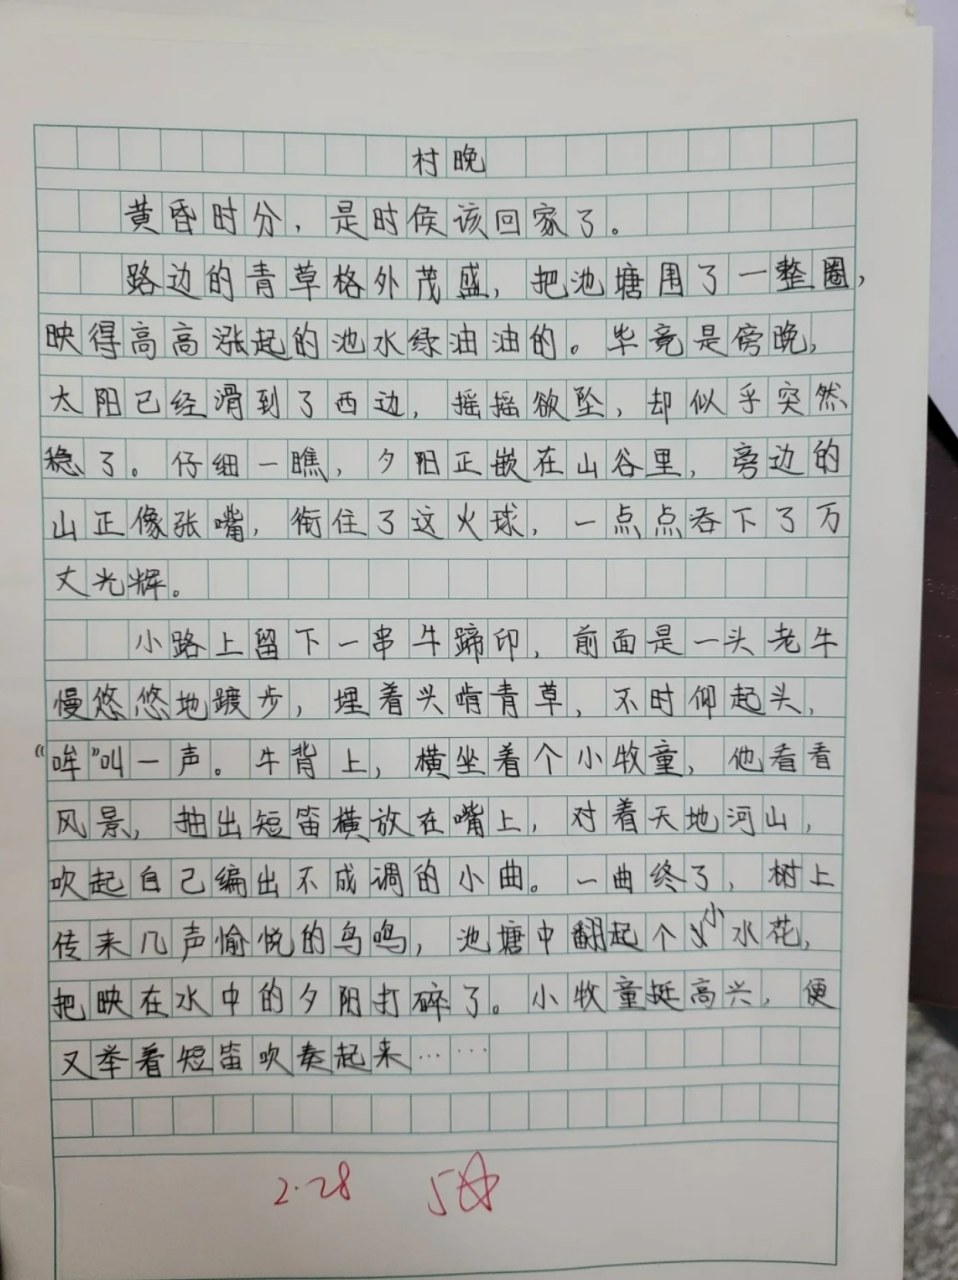 村晚
黄昏时分，是时候该回家了。
路边的青草格外茂盛，把池塘围了一整圈，
映得高高涨起的池水绿油油的。毕竟是傍晚，
太阳已经滑到了西边，摇摇欲坠，却似乎突然
稳了。仔细一瞧，夕阳正嵌在山谷里，旁边的
山正像张嘴，衔住了这火球，一点点吞下了万
丈光辉。
小路上留下一串牛蹄印，前面是一头老牛
慢悠悠地踱步，埋着头啃青草，不时仰起头，
“哞”叫一声。牛背上，横坐着个小牧童，他看看
风景，抽出短笛横放在嘴上，对着天地河山，
吹起自己编出不成调的小曲。一曲终了，树上
传来几声愉悦的鸟鸣，池塘中翻起个小水花，
把映在水中的夕阳打碎了。小牧童挺高兴，便
又举着短笛吹奏起来……
2.28 5☆